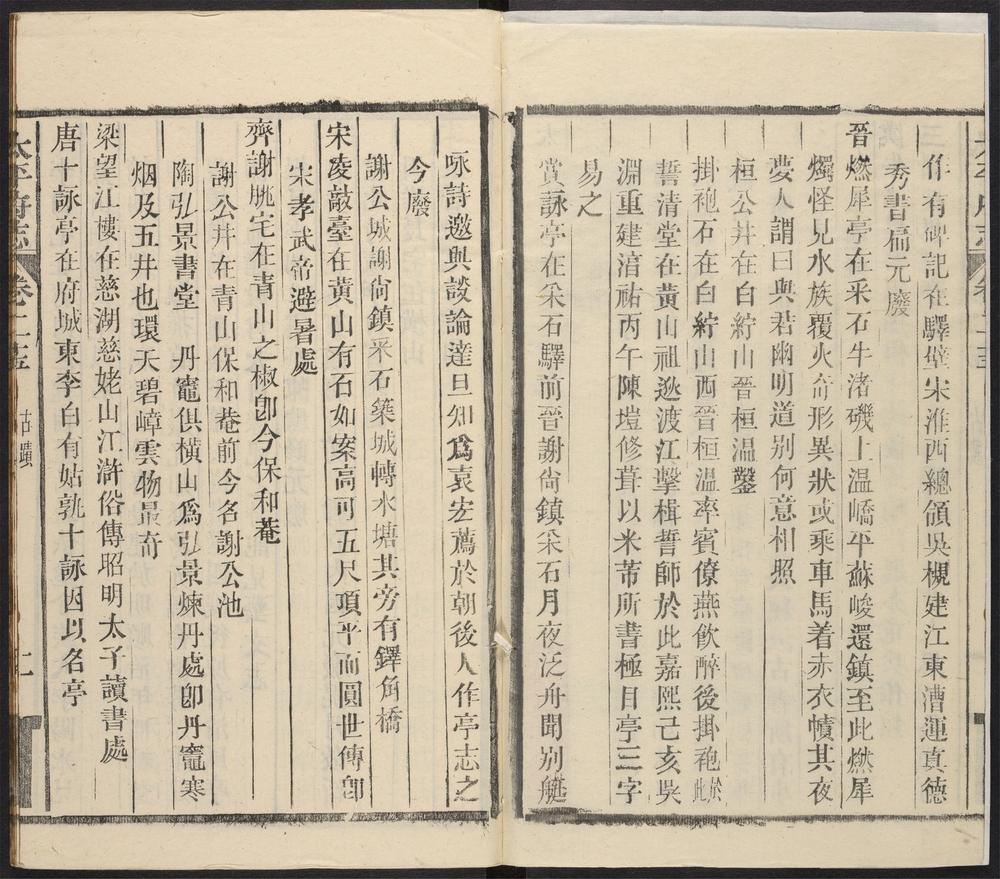 作有碑記在驛壁宋淮西總領吳槻建江東漕運真德
秀書扁元廢
晉燃犀亭在采石牛渚磯上温嶠平蘇峻還鎮至此燃犀
燭怪見水族覆火奇形異狀或乘車馬着赤衣幘其夜
夢人謂曰與君幽明道别何意相照
桓公井在白紵山晉桓温鑿
掛袍石在白紵山西晉桓温率賓僚燕飲醉後掛袍於此
誓清堂在黃山祖逖渡江擊楫誓師於此嘉熙己亥吳
淵重建淯祐丙午陳塏修葺以米芾所書極目亭三字
易之
賞詠亭在采石驛前晉謝尚鎮采石月夜泛舟聞别艇
咏詩邀與談論達旦知爲袁宏薦於朝後人作亭志之
今廢
謝公城謝尚鎮采石築城轉水塘其旁有鐸角橋
宋凌歊臺在黃山有石如案高可五尺頂平而圓世傳卽
宋孝武帝避暑處
齊謝朓宅在青山之椒卽今保和菴
謝公井在青山保和菴前今名謝公池
陶弘景書堂 丹竈俱橫山爲弘景煉丹處卽丹竈寒
烟及五井也環天碧嶂雲物最奇
梁望江樓在慈湖慈姥山江滸俗傳昭明太子讀書處
唐十詠亭在府城東李白有姑孰十詠因以名亭
太平府志 卷二十五 古蹟 二